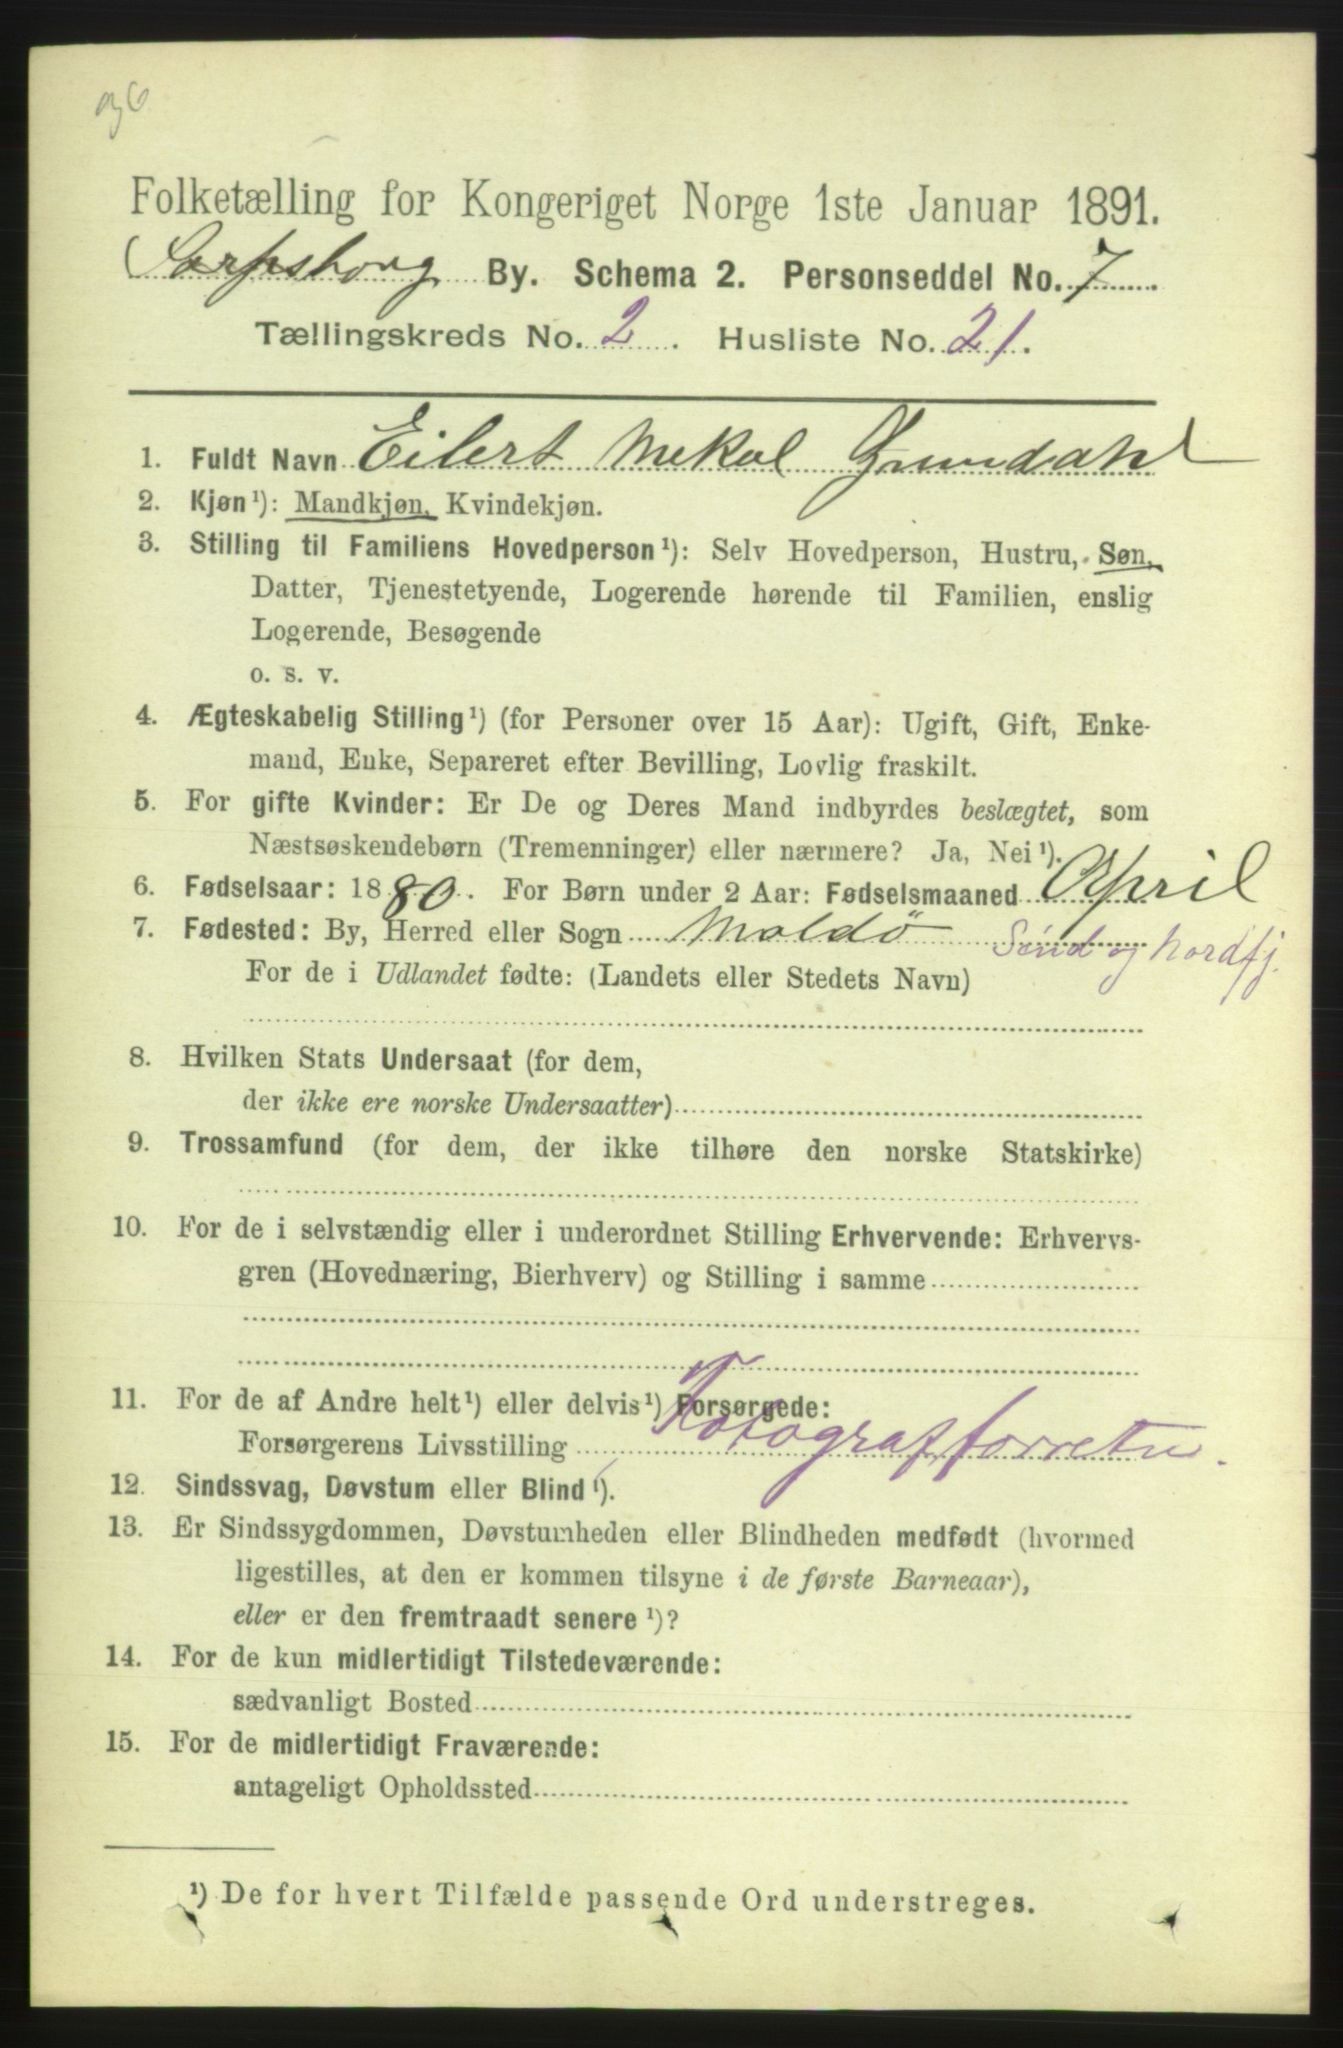 36
Folketælling for Kongeriget Norge 1ste Januar 1891.
Sarpsborg By. Schema 2. Personseddel No. 7.
Tællingskreds No. 2. Husliste No. 21.
1. Fuldt Navn Eilert Mekal Grundahl
2. Kjøn¹): Mandkjøn, Kvindekjøn.
3. Stilling til Familiens Hovedperson¹): Selv Hovedperson, Hustru, Søn,
Datter, Tjenestetyende, Logerende hørende til Familien, enslig
Logerende, Besøgende
o. s. v.
4. Ægteskabelig Stilling¹) (for Personer over 15 Aar): Ugift, Gift, Enke-
mand, Enke, Separeret efter Bevilling, Lovlig fraskilt.
5. For gifte Kvinder: Er De og Deres Mand indbyrdes beslægtet, som
Næstsøskendebørn (Tremenninger) eller nærmere? Ja, Nei¹).
6. Fødselsaar: 1880. For Børn under 2 Aar: Fødselsmaaned April
7. Fødested: By, Herred eller Sogn Moldø Sønd og Nordfj.
For de i Udlandet fødte: (Landets eller Stedets Navn)
8. Hvilken Stats Undersaat (for dem,
der ikke ere norske Undersaatter)
9. Trossamfund (for dem, der ikke tilhøre den norske Statskirke)
10. For de i selvstændig eller i underordnet Stilling Erhvervende: Erhvervs-
gren (Hovednæring, Bierhverv) og Stilling i samme
11. For de af Andre helt¹) eller delvis¹) Forsørgede:
Forsørgerens Livsstilling Fotografforretn.
12. Sindssvag, Døvstum eller Blind¹).
13. Er Sindssygdommen, Døvstumheden eller Blindheden medfødt (hvormed
ligestilles, at den er kommen tilsyne i de første Barneaar),
eller er den fremtraadt senere¹)?
14. For de kun midlertidigt Tilstedeværende:
sædvanligt Bosted
15. For de midlertidigt Fraværende:
antageligt Opholdssted
¹) De for hvert Tilfælde passende Ord understreges.